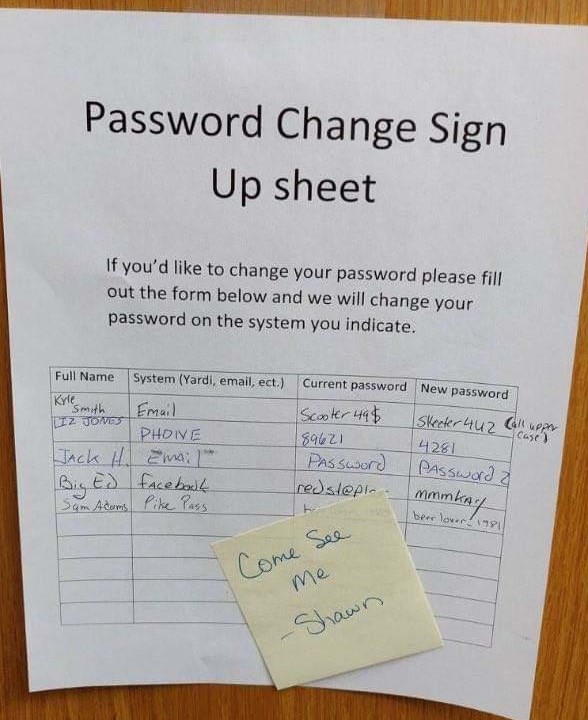 Password Change Sign
Up sheet
If you'd like to change your password please fill
out the form below and we will change your
password on the system you indicate.
Full Name System (Yardi, email, ect.) Current password New password
Kyle Smith Email Scooter 49$ Skeeter 4U2 (all upper case)
LIZ JONES PHONE 89621 4281
Jack H. Email Password Password 2
Big Ed facebook mmmkay
Sam Adams Pike Pass beer lover-1981
Come See
Me
-Shawn